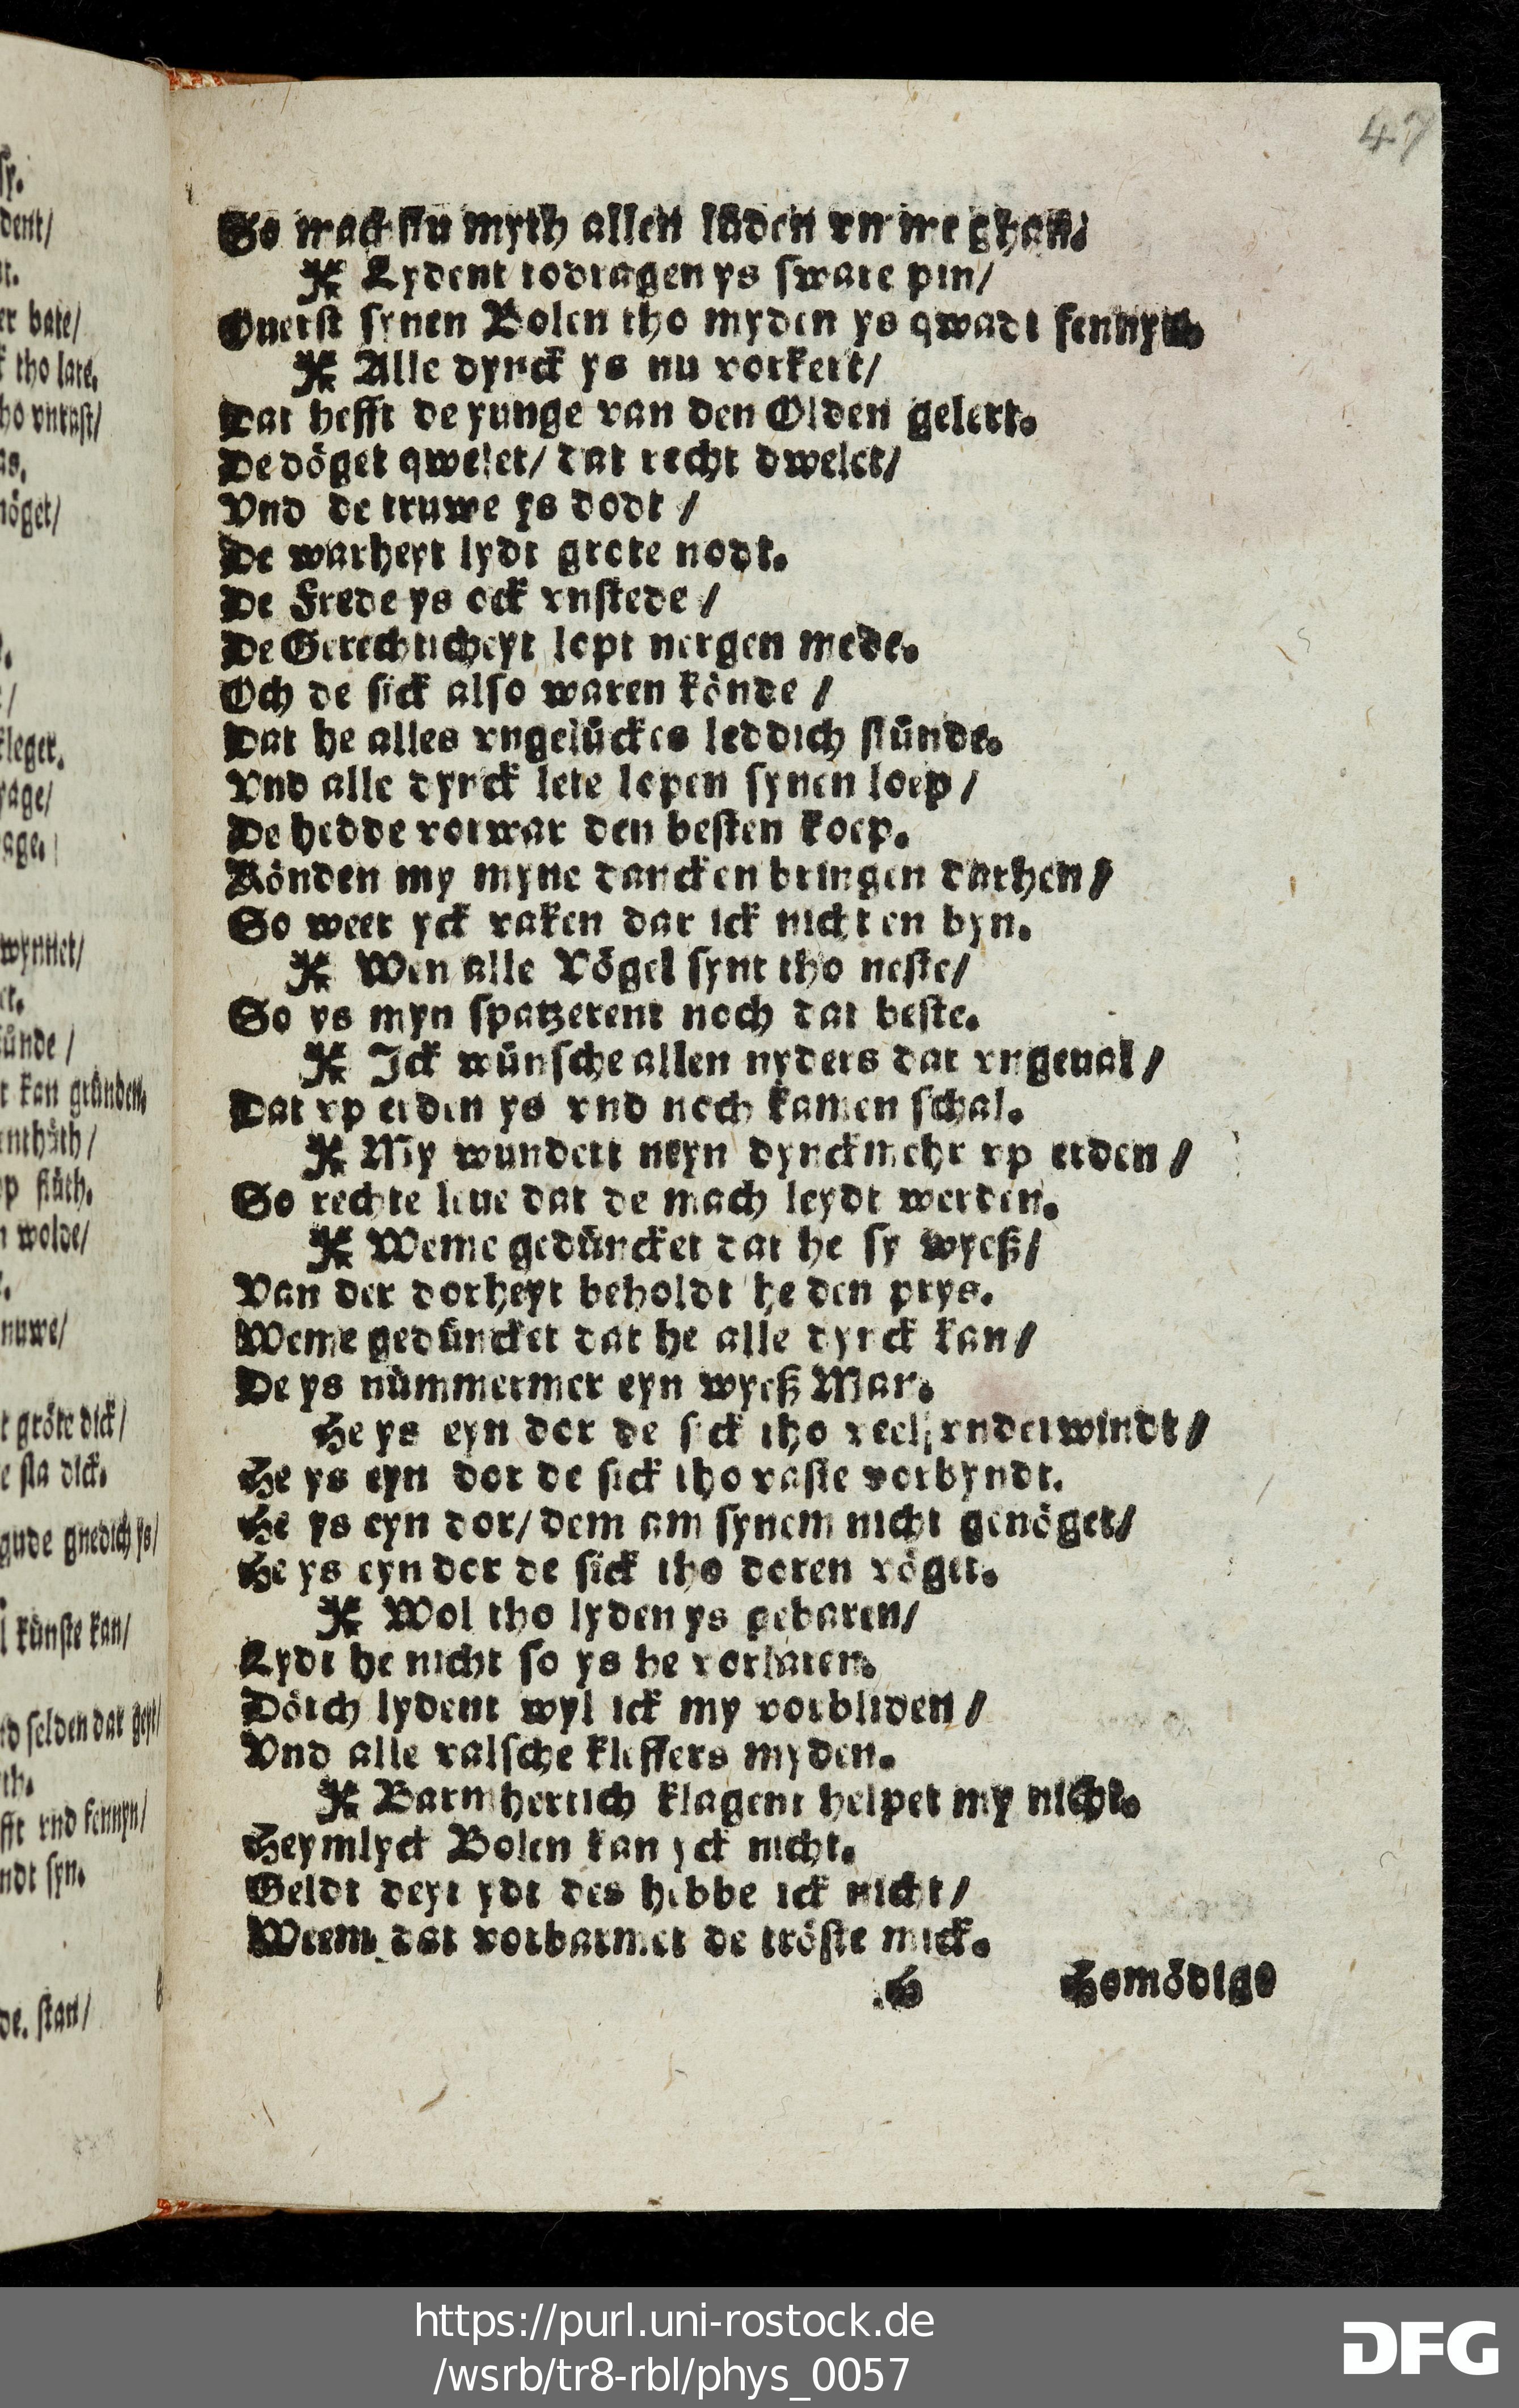 47
So machstu myth allen lüden vmme ghan.
Lydent todragen ys sware pin/
Ouerst synen Bolen tho myden ys qwadt fennyn.
Alle dynck ys nu vorkert/
Dat hefft de yunge van den Olden gelert.
De döget qwelet/ dat recht dwelet/
Vnd de truwe ys dodt /
De warheyt lydt grote nodt.
De Frede ys ock vnstede /
De Gerechticheyt lopt nergen mede.
Och de sick also waren könde /
Dat he alles vngelückes leddich stünde.
Vnd alle dynck lete lopen synen loep /
De hedde vorwar den besten koep.
Könden my myne dancken bringen darhen /
So weer yck vaken dar ick nicht en byn.
Wen alle Vögel synt tho neste/
So ys myn spatzerent noch dat beste.
Ick wünsche allen nyders dat vngeual /
Dat vp erden ys vnd noch kamen schal.
My wundert neyn dynck mehr vp erden /
So rechte leue dat de mach leydt werden.
Weme gedüncket dat he sy wyeß/
Van der dorheyt beholdt he den prys.
Weme gedüncket dat he alle dynck kan/
De ys nümmermer eyn wyeß Man.
He ys eyn dor de sick tho veel vnderwindt/
He ys eyn dor de sick tho vaste vorbyndt.
He ys eyn dor/ dem am synem nicht genöget/
He ys eyn dor de sick tho doren vöget.
Wol tho lyden ys gebaren/
Lydt he nicht so ys he vorlaren.
Dörch lydent wyl ick my vorbliden /
Vnd alle valsche kleffers myden.
Barmhertich klagent helpet my nicht.
Heymlyck Bolen kan yck nicht.
Geldt deyt ydt des hebbe ick nicht/
Weem dat vorbarmet de tröste mick.
H Homödige
https://purl.uni-rostock.de
/wsrb/tr8-rbl/phys_0057
DFG